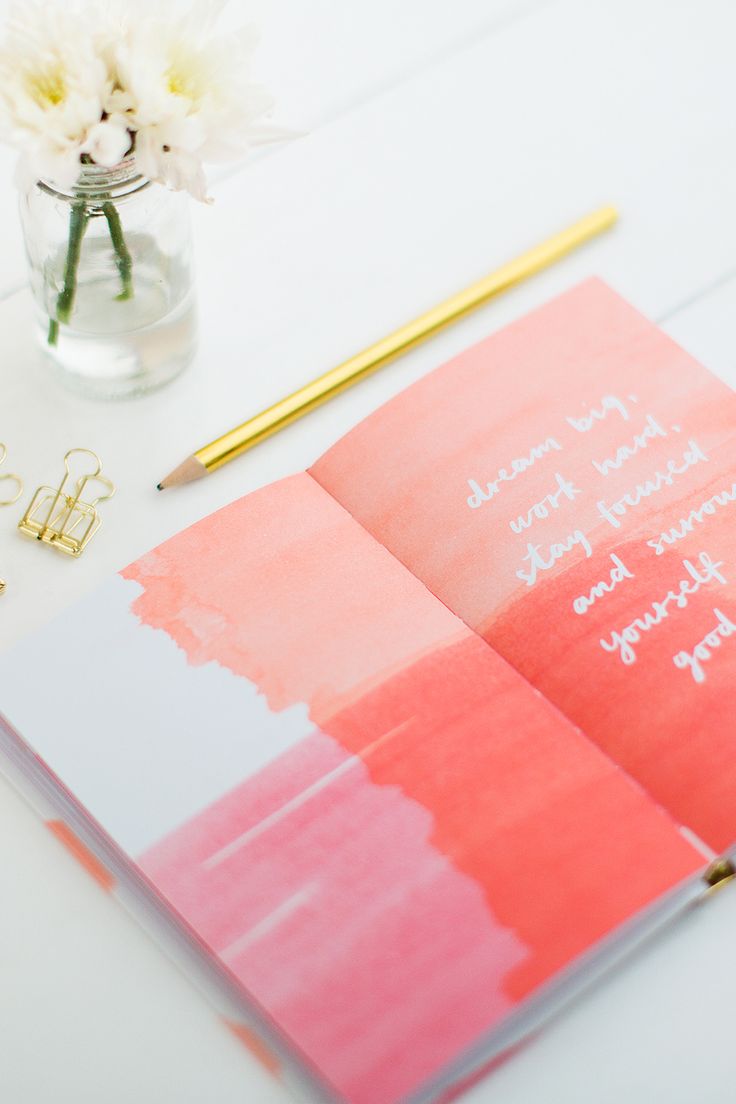 dream big,
work hard,
stay focused
and
yourself
good